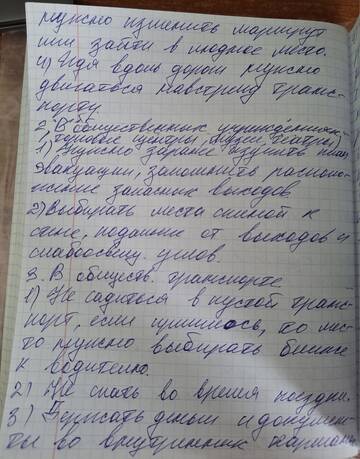 нужно изменить маршрут
или зайти в людное место.
4) Идя вдоль дороги нужно
двигаться навстречу транс-
порту.
2. В общественных учреждениях
(торговые центры, музеи, театры)
1) Нужно заранее изучить план
эвакуации, запомнить располо-
жение запасных выходов
2) Выбирать места спиной к
стене, подальше от выходов и
слабоосвещ. углов.
3. В обществ. транспорте
1) Не садиться в пустой транс-
порт, если пришлось, то мес-
то нужно выбирать ближе
к водителю.
2) Не спать во время поездки.
3) Держать деньги и докумен-
ты во внутренних карманах